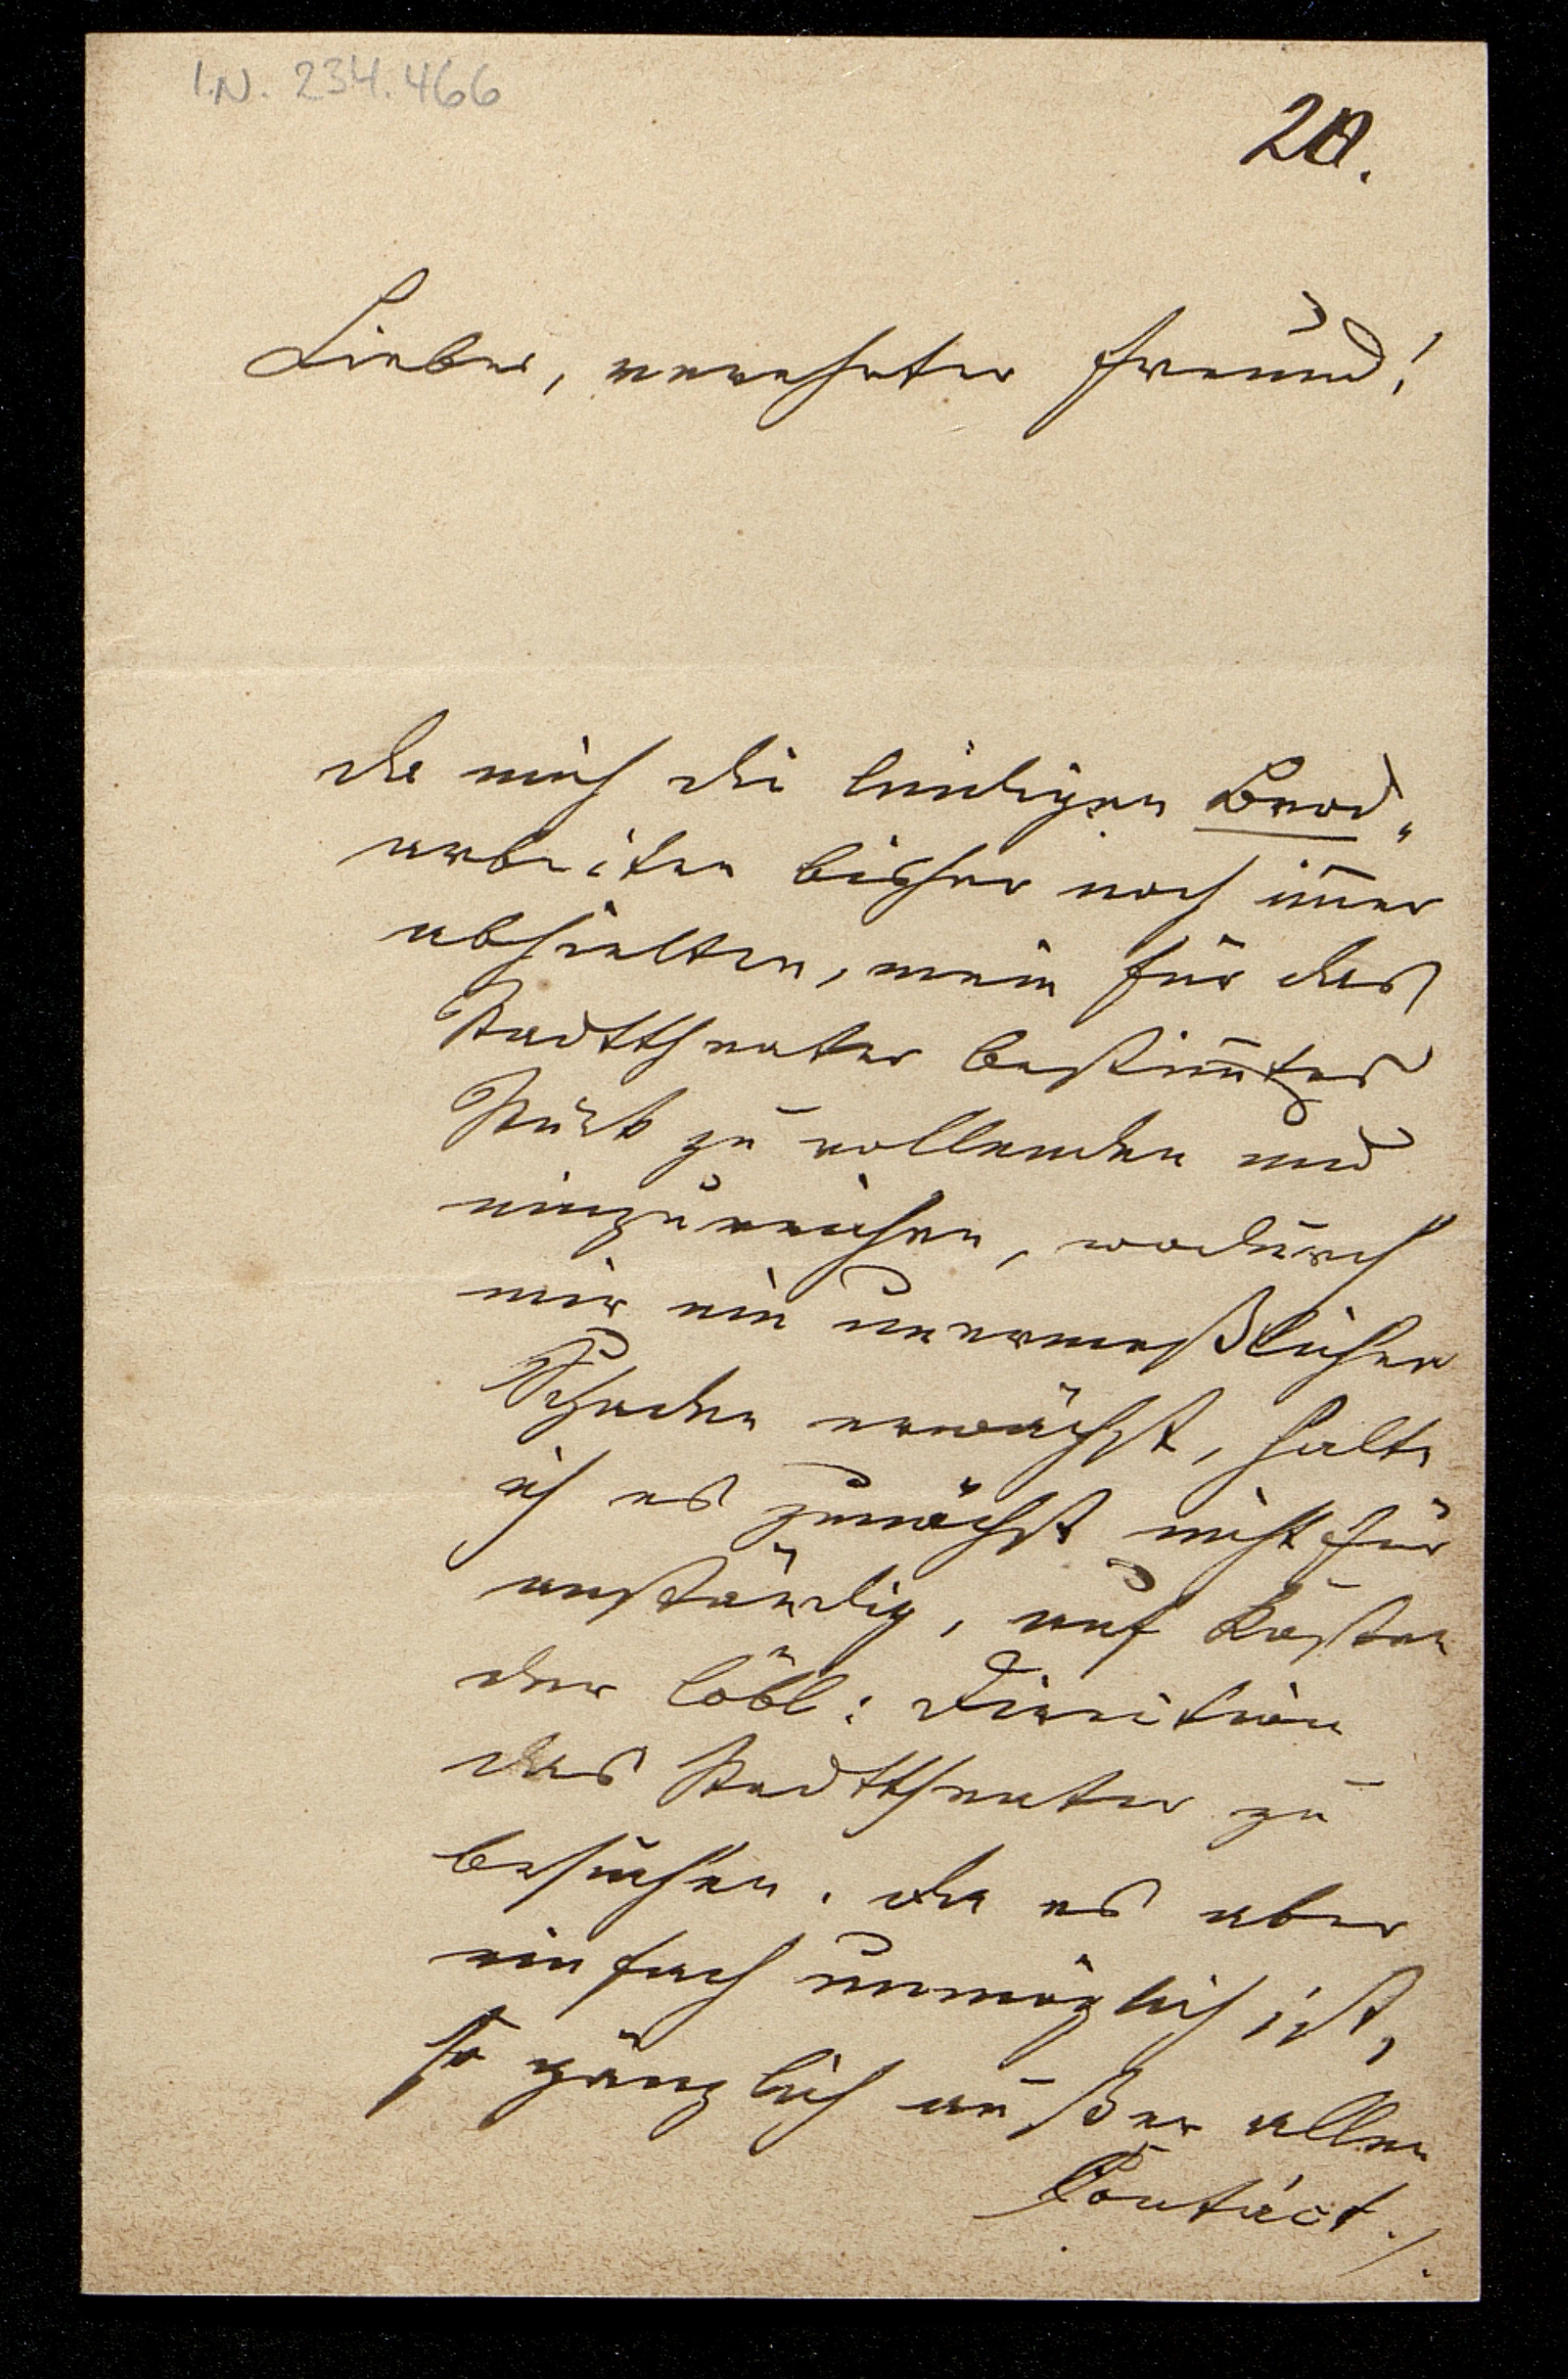 I.N. 234.466
20.
Lieber, verehrter Freund!
Da mich die leidigen Brod„
arbeiten bisher noch im̅er
abhielten, mein für das
Stadttheater bestim̅tes
Stück zu vollenden und
einzureichen, wodurch
mir ein unermeßlicher
Schaden erwächst, halte
ich es zunächst nicht für
anständig, auf Kosten
der löbl: Direction
das Stadttheater zu
besuchen. Da es aber
einfach unmöglich ist,
so gänzlich außer allen
Contact ./.